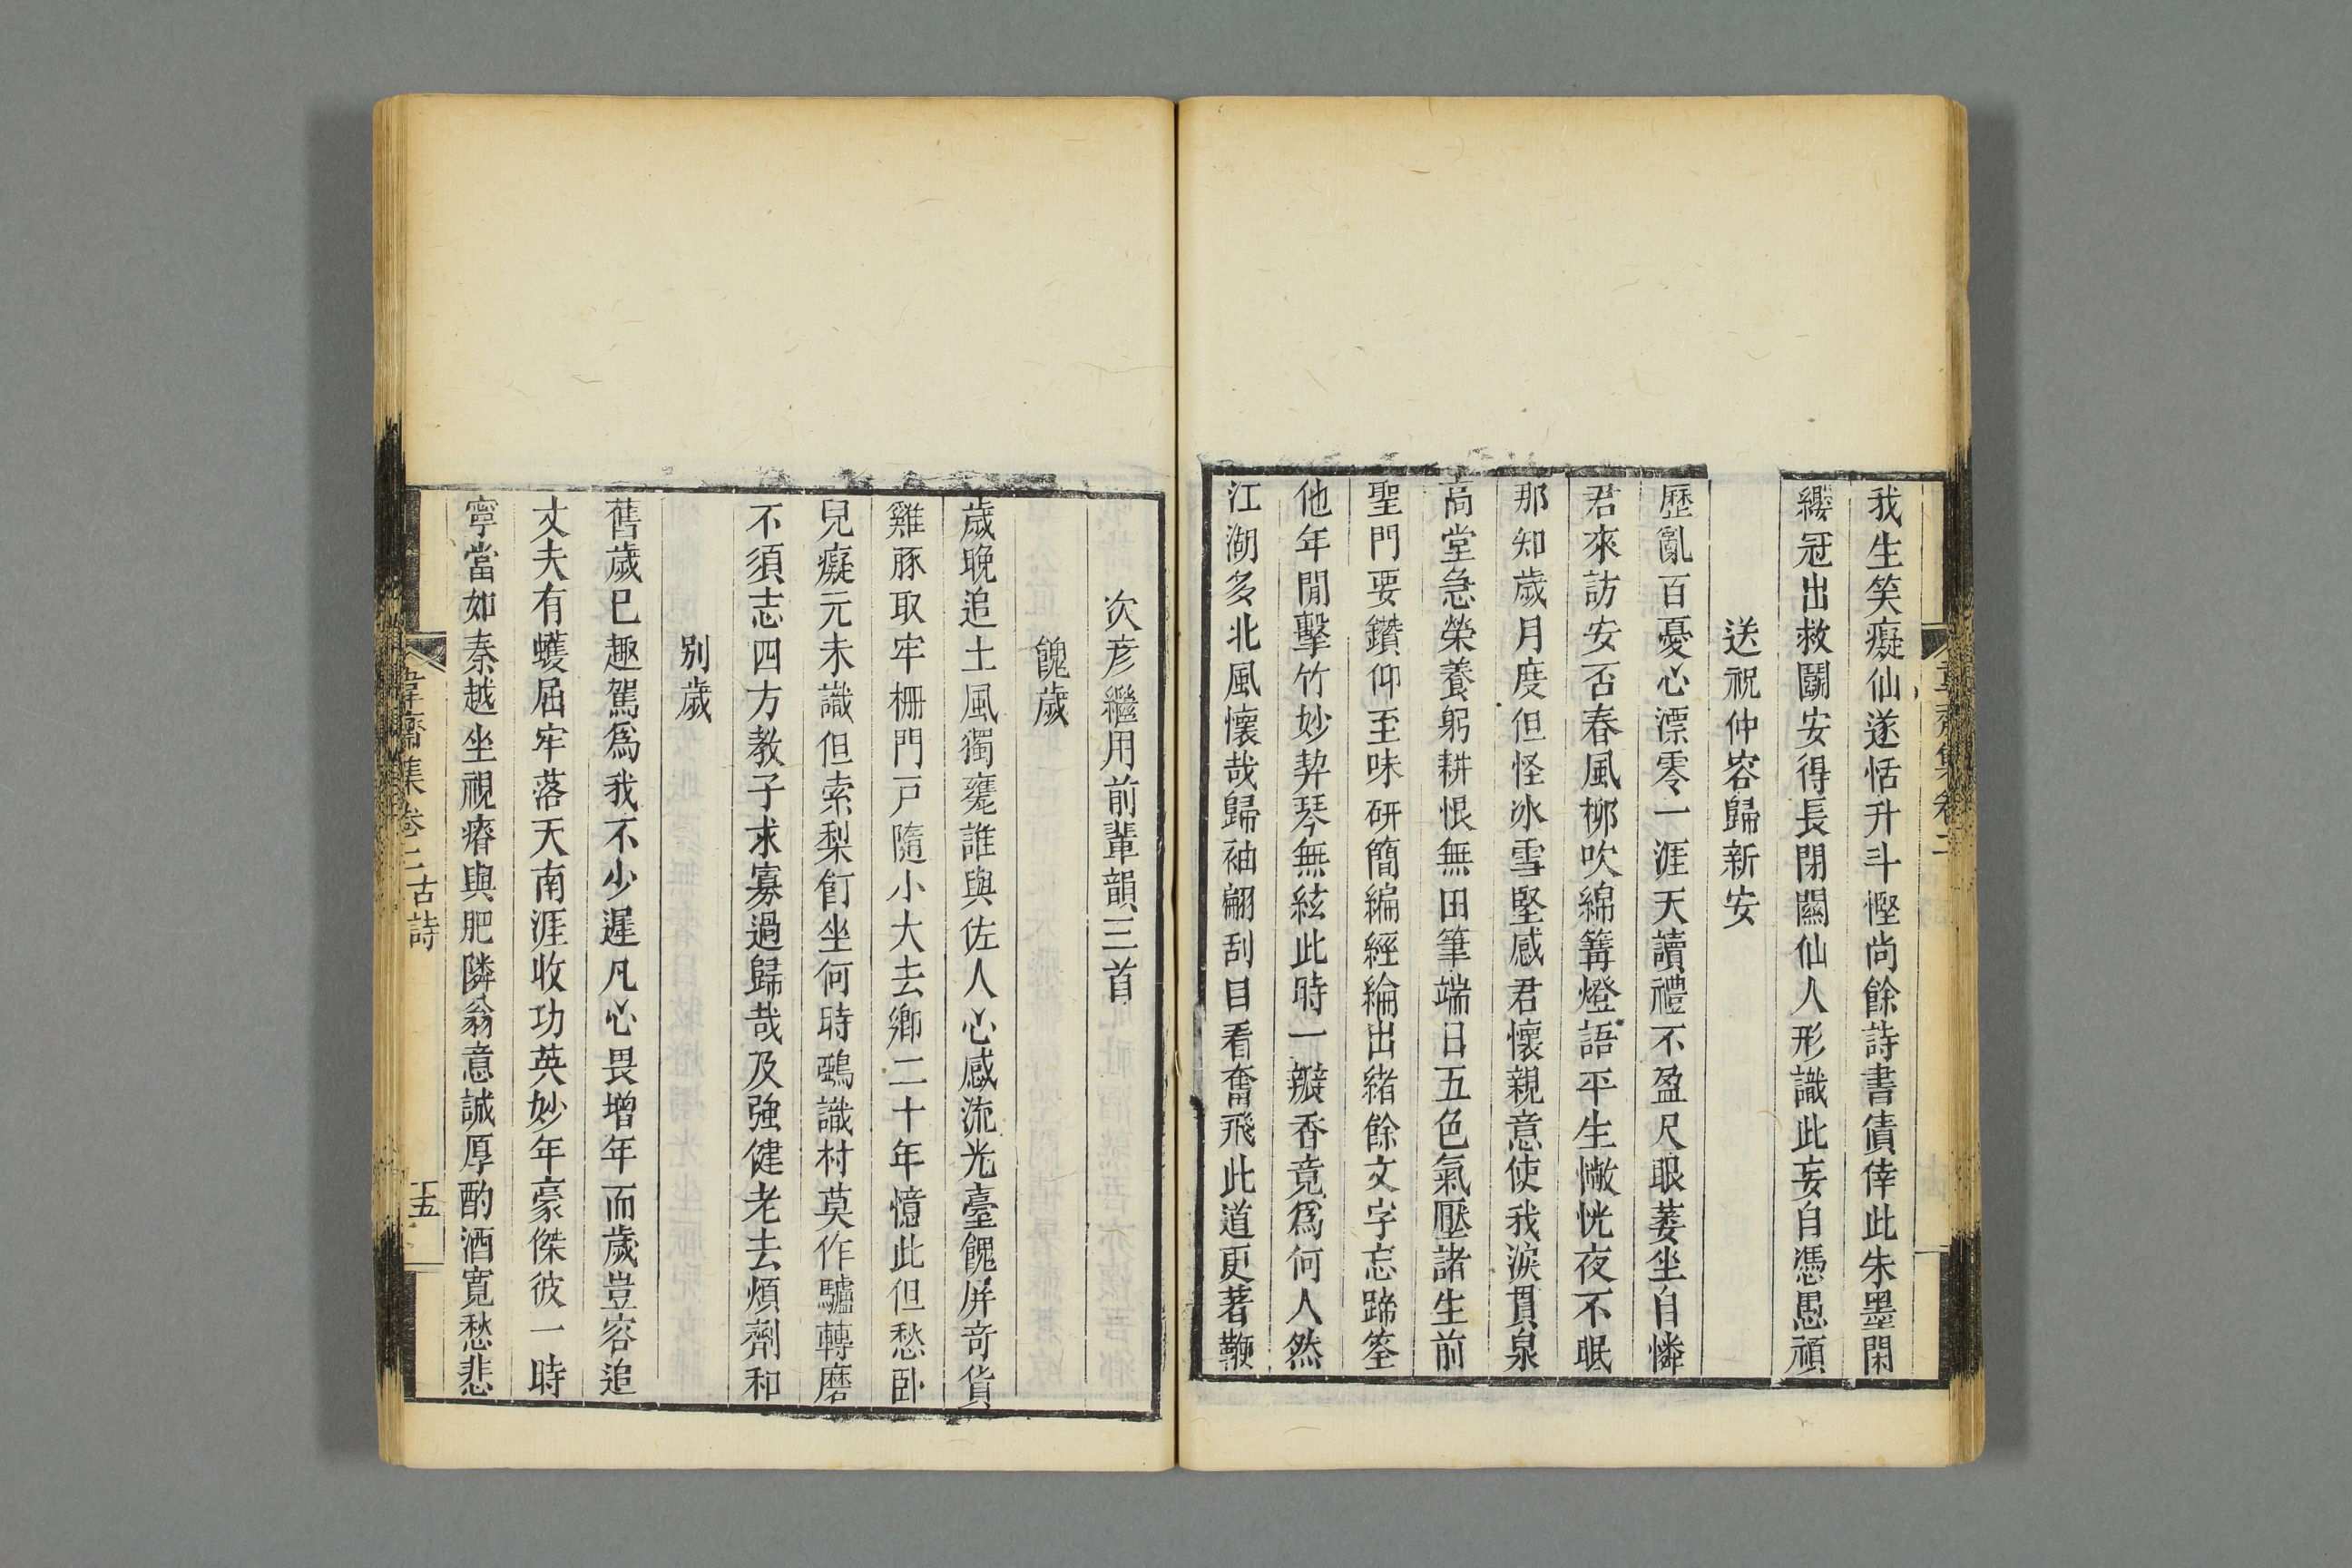 我生笑癡仙遂恬升斗慳尚餘詩書債倖此朱墨閑
纓冠出救鬭安得長閉關仙人形識此妄自憑愚頑
送祝仲容歸新安
歷亂百憂心漂零一涯天讀禮不盈尺眼萎坐自憐
君來訪安否春風柳吹綿篝燈語平生懒恍夜不眠
那知歲月度但怪冰雪堅感君懷親意使我淚貫泉
高堂急榮養躬耕恨無田筆端日五色氣壓諸生前
聖門要鑽仰至味研簡編經綸出緒餘文字忘蹄筌
他年閒擊竹妙契琴無絃此時一瓣香竟爲何人然
江湖多北風懷哉歸袖翩刮目看奮飛此道更著鞭
次彦繼用前輩韻三首
餽歲
歲晚追土風獨寤誰與佐人心感流光臺餽屏奇貨
雞豚取牢柵門戸隨小大去鄉二十年憶此但愁臥
兒癡元未識但索梨飣坐何時鵶識村莫作驢轉磨
不須志四方教子求寡過歸哉及強健老去煩劑和
別歲
舊歲巳趣駕爲我不少遲凡心畏增年而歲豈容追
丈夫有蠖屈牢落天南涯收功英妙年豪傑彼一時
寧當如秦越坐視瘠與肥隣翁意誠厚酌酒寬愁悲
韋齋集卷二 古詩
十五